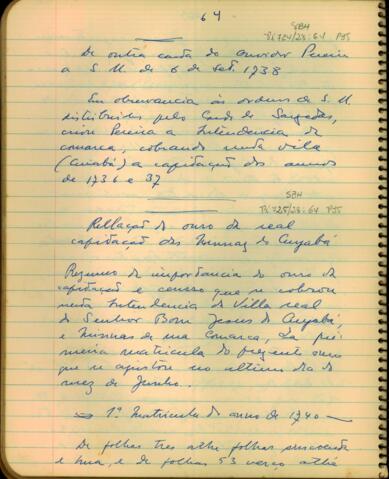 64
SBH
Pi 724/28:64 P75
De outra carta do ouvidor Pereira
a S. M. de 6 de Set. 1738
Em observancia às ordens de S. M.
distribuidas pelo Conde de Sarzedas,
criou Pereira a Intendencia da
comarca, cobrando nesta villa
(Cuiabá) a capitação dos annos
de 1736 e 37
SBH
Pi 725/28:64 P75
Rellação do ouro da real
capitação das Minnaz do Cuyabá
Rezumo da importancia do ouro da
capitação e censo que se cobrou
nesta Intendencia da Villa real
do Senhor Bom Jesus do Cuyabá,
e Minnas de sua Comarca, da pri-
meira matricula do prezente anno
que se ajustou no ultimo dia do
mez de Junho.
1ª Matricula do anno de 1740
De folhas tres athe folhas sincoenta
e huma, e de folhas 53 verço athé